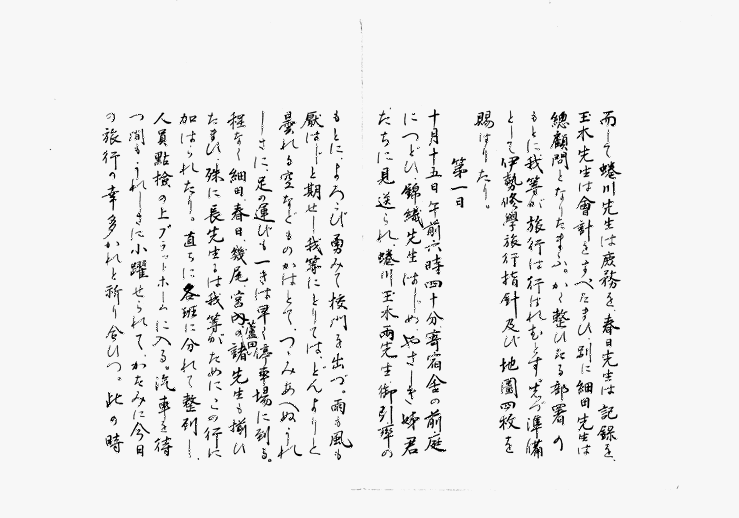 而して蜷川先生は庶務を、春日先生は記録を、
玉木先生は會計をすべたまひ、別に細田先生は
總顧問となりたまふ。かく整ひたる部署の
もとに我等が旅行は行はれむとす。先づ準備
として伊勢修學旅行指針及び地圖四枚を
賜はりたり。
第一日
十月十五日午前六時四十分、寄宿舎の前庭
につどひ、錦織先生はじめやさしき姉君
たちに見送られ、蜷川玉木両先生御引率の
もとによろこび勇みて校門を出づ。雨も風も
厭はじと期せし我等にとりては、どんよりと
曇れる空などものかはとて、つゝみあへぬうれ
しさに、足の運びも一きは早く停車場に到る。
程なく細田、春日、幾尾、宮内、蘆田の諸先生も揃ひ
たまひ、殊に長先生は我等がためにこの行に
加はられたり。直ちに各班に分れて整列し、
人員點檢の上プラットホームに入る。汽車を待
つ間も、うれしさに小躍せられて、かたみに今日
の旅行の幸多かれと祈り合ひつ。此の時